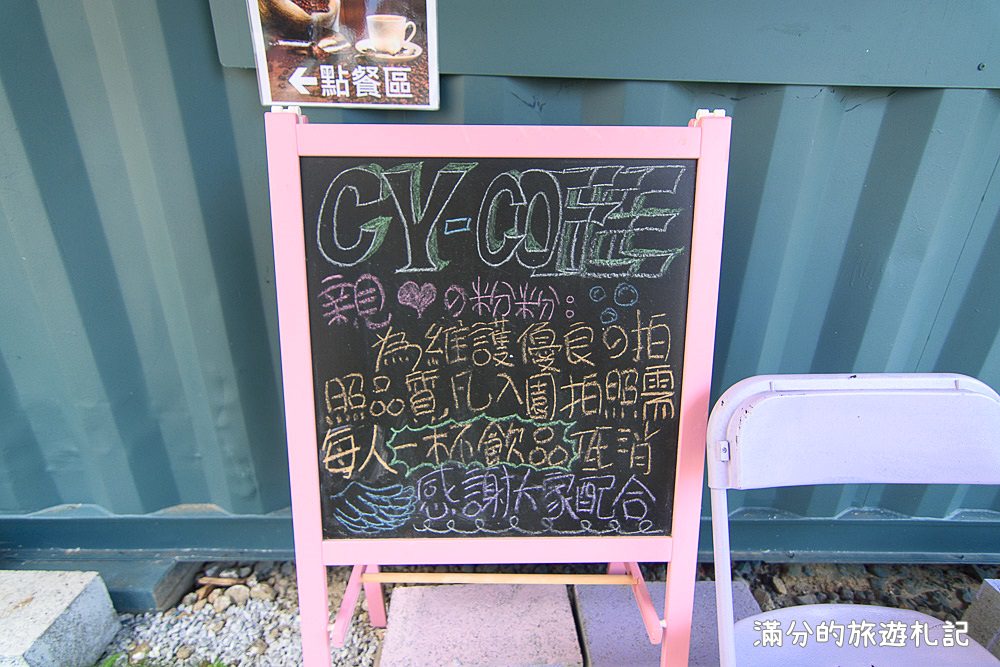 ←點餐區
CY-CO
親❤の粉粉:
為維護優良の拍
照品質,凡入園拍照需
每人一杯飲品低消
感謝大家配合
滿分的旅遊札記